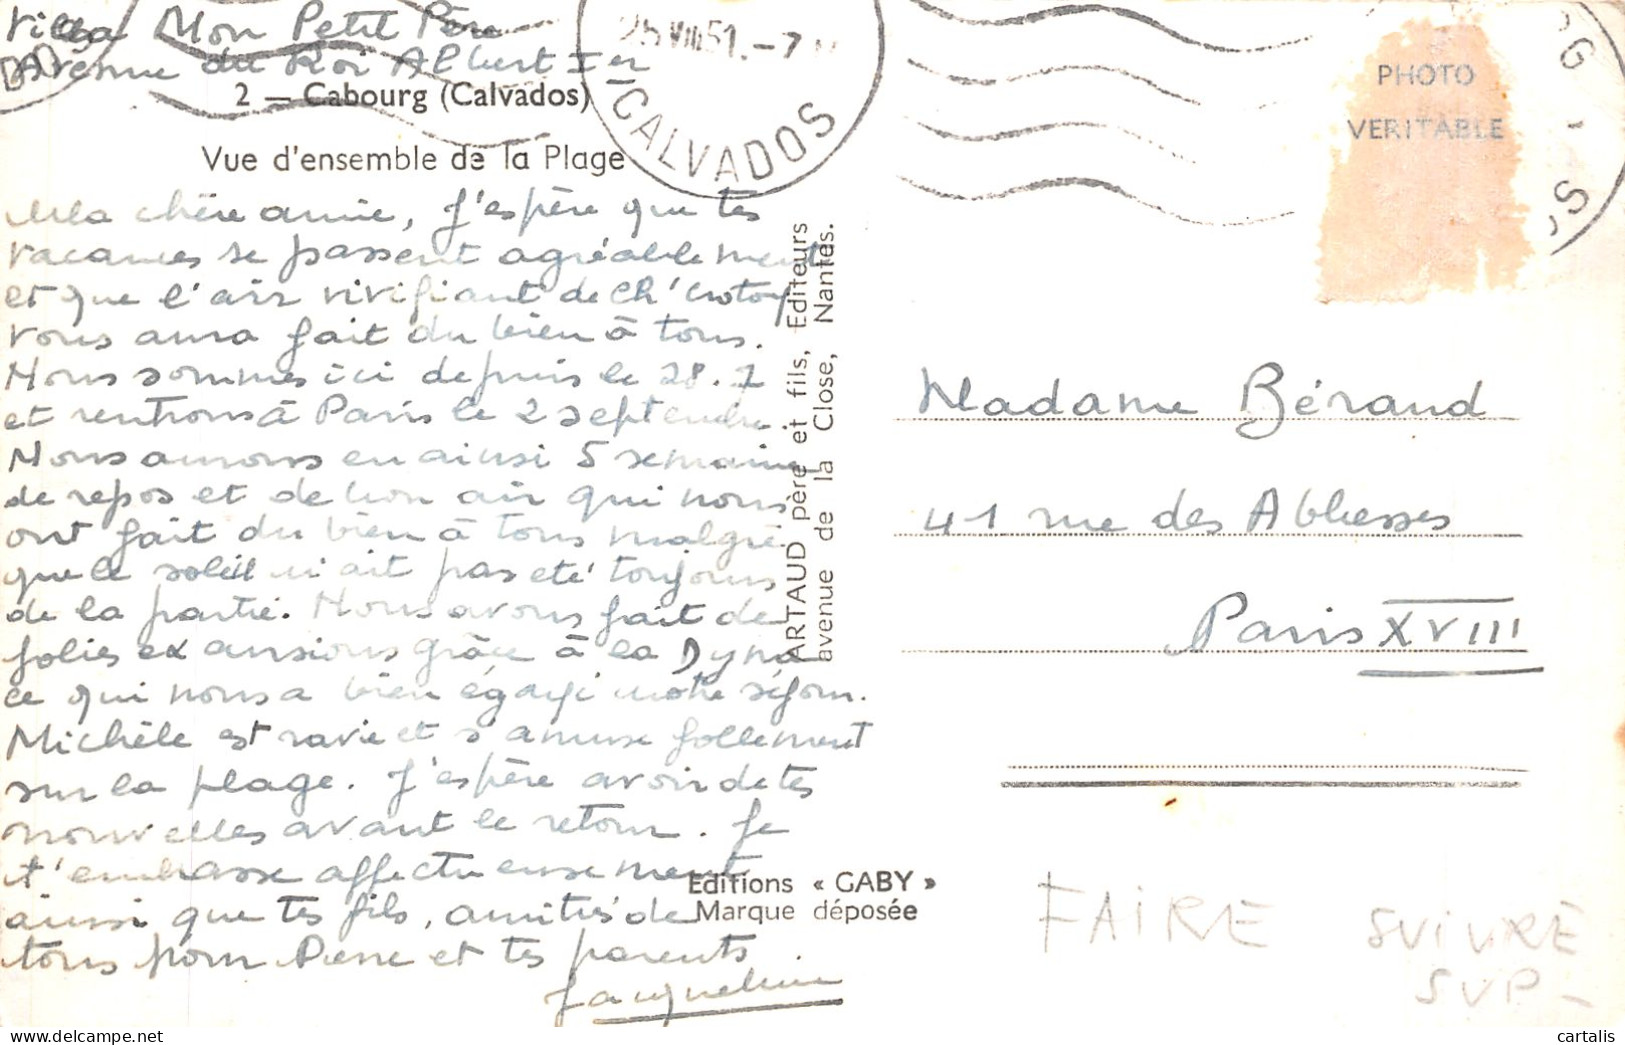 Villa Mon Petit Père
Avenue du Roi Albert Ier
2 — Cabourg (Calvados)
Vue d'ensemble de la Plage
25 VIII 51. - 7
CALVADOS
PHOTO
VERITABLE
Ma chère amie, j'espère que tes
vacances se passent agréablement
et que l'air vivifiant de Ch' crotoy
vous aura fait du bien à tous.
Nous sommes ici depuis le 28.7
et rentrons à Paris le 2 septembre
Nous aurons eu ainsi 5 semaines
de repos et de bon air qui nous
ont fait du bien à tous malgré
que le soleil n'ait pas été toujours
de la partie. Nous avons fait de
folies excursions grâce à la Dyna
ce qui nous a bien égayé notre séjour.
Michèle est ravie et s'amuse follement
sur la plage. J'espère avoir de tes
nouvelles avant le retour. Je
t'embrasse affectueusement
ainsi que tes fils, amitiés de
tous pour Pierre et tes parents
Jacqueline
ARTAUD père et fils, Editeurs
avenue de la Close, Nantes.
Editions « GABY »
Marque déposée
Madame Béraud
41 rue des Abbesses
Paris XVIII
FAIRE SUIVRE
SVP -
cartalis